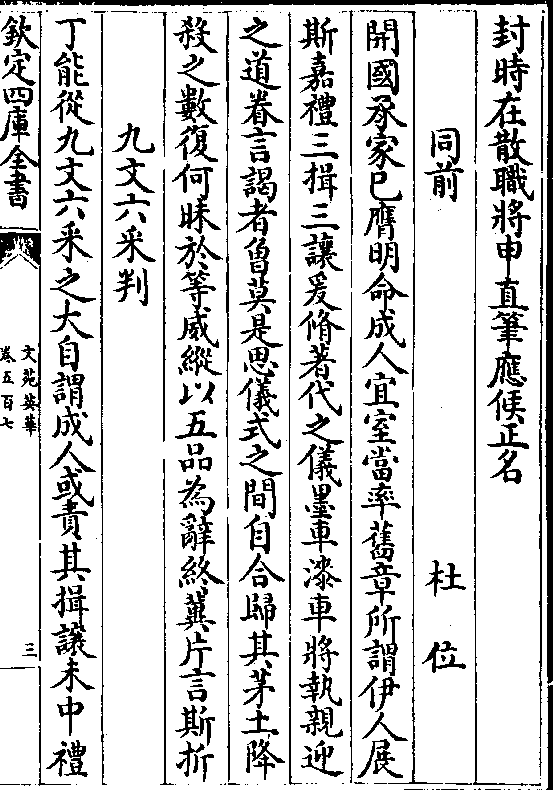 封時在散職將申直筆應候正名
同前 杜位
開國承家已膺明命成人宜室當率舊章所謂伊人展
斯嘉禮三揖三讓爰脩著代之儀墨車漆車將執親迎
之道眷言謁者曽莫是思儀式之間自合歸其茅土降
殺之數復何昧於等威縱以五品為辭終冀片言斯折
九文六采判
丁能從九文六采之大自謂成人或責其揖讓未中禮
欽定四庫全書
文苑英華
卷五百七
三